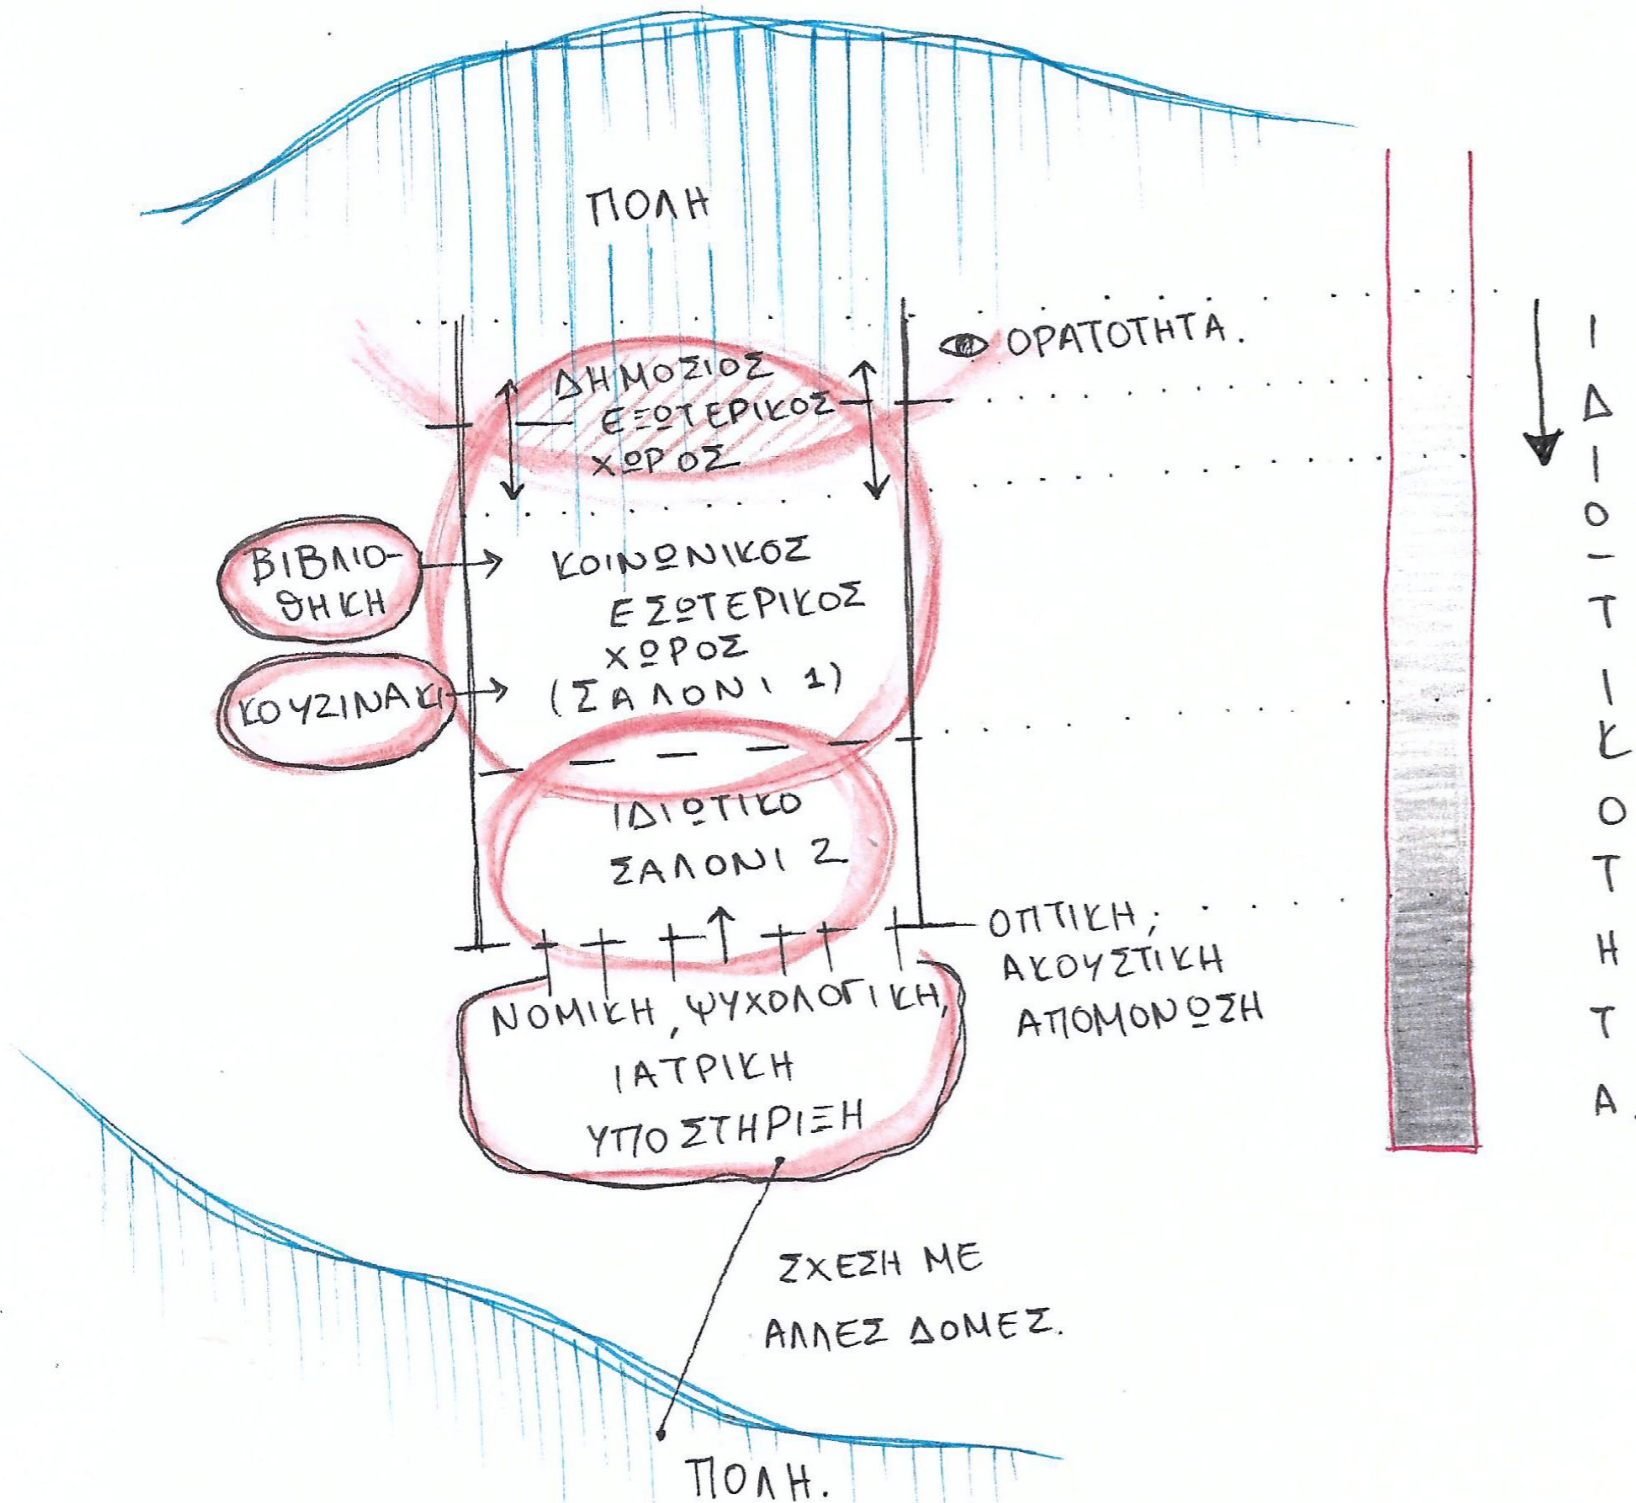 ΠΟΛΗ
ΟΡΑΤΟΤΗΤΑ.
ΔΗΜΟΣΙΟΣ
ΕΞΩΤΕΡΙΚΟΣ
ΧΩΡΟΣ
ΒΙΒΛΙΟ-
ΘΗΚΗ
ΚΟΙΝΩΝΙΚΟΣ
ΕΣΩΤΕΡΙΚΟΣ
ΧΩΡΟΣ
(ΣΑΛΟΝΙ 1)
ΚΟΥΖΙΝΑΚΙ
ΙΔΙΩΤΙΚΟ
ΣΑΛΟΝΙ 2
ΟΠΤΙΚΗ;
ΑΚΟΥΣΤΙΚΗ
ΑΠΟΜΟΝΩΣΗ
ΝΟΜΙΚΗ, ΨΥΧΟΛΟΓΙΚΗ,
ΙΑΤΡΙΚΗ
ΥΠΟΣΤΗΡΙΞΗ
ΣΧΕΣΗ ΜΕ
ΑΛΛΕΣ ΔΟΜΕΣ.
ΠΟΛΗ.
ΙΔΙΩΤΙΚΟΤΗΤΑ.